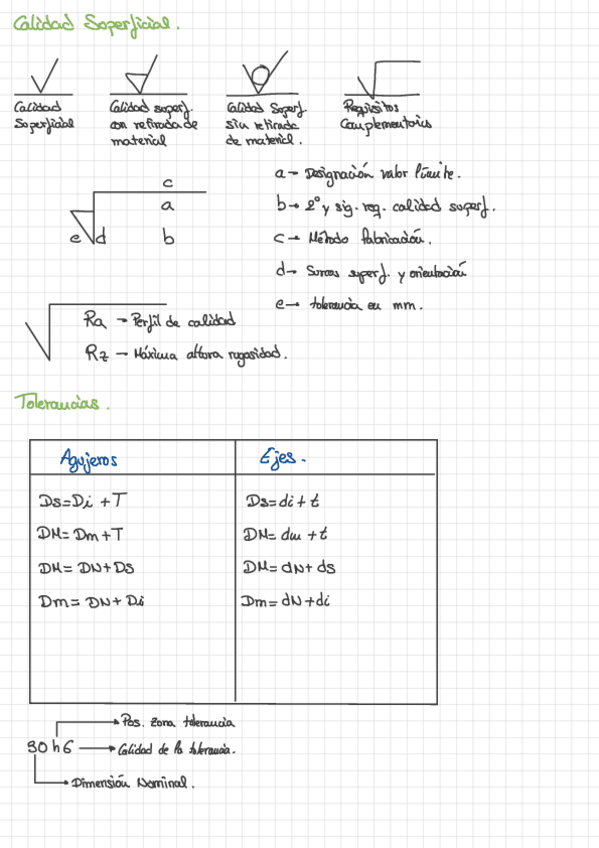 Calidad Superficial.
Calidad Superficial
Calidad superf. con retirada de material
Calidad Superf. sin retirada de material.
Requisitos Complementarios
c
a
e d b
a → Designación valor límite.
b → 2º y sig. req. calidad superf.
c → Método fabricación.
d → Surcos superf. y orientación
e → tolerancia en mm.
Ra → Perfil de calidad
Rz → Máxima altura rugosidad.
Tolerancias.
Agujeros
Ejes.
Ds=Di + T
Ds=di + t
DM= Dm + T
DM= dm + t
DM= DN + DS
DM= dN + ds
Dm= DN + Di
Dm= dN + di
Pos. zona tolerancia
30 h 6 → Calidad de la tolerancia.
Dimensión Nominal.